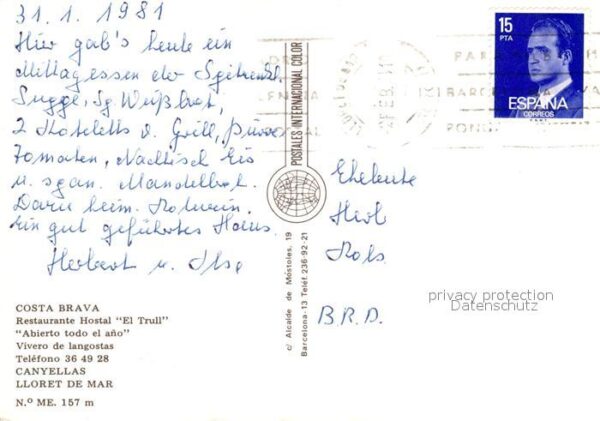 31.1.1981
Hier gab's heute ein
Mittagessen der Spitzenkl.
Suppe, Sp. Weißbrot,
2 Koteletts v. Grill, Püree
Tomaten, Nachtisch Eis
u. span. Mandelbrot.
Dazu heim. Rotwein.
Ein gut geführtes Haus.
Herbert u. Ilse
COSTA BRAVA
Restaurante Hostal "El Trull"
"Abierto todo el año"
Vivero de langostas
Teléfono 36 49 28
CANYELLAS
LLORET DE MAR
N.º ME. 157 m
POSTALES INTERNACIONAL COLOR
c/ Alcalde de Móstoles, 19
Barcelona-13 Teléf. 236-92-21
15
PTA
ESPAÑA
CORREOS
Eheleute
B.R.D.
privacy protection
Datenschutz